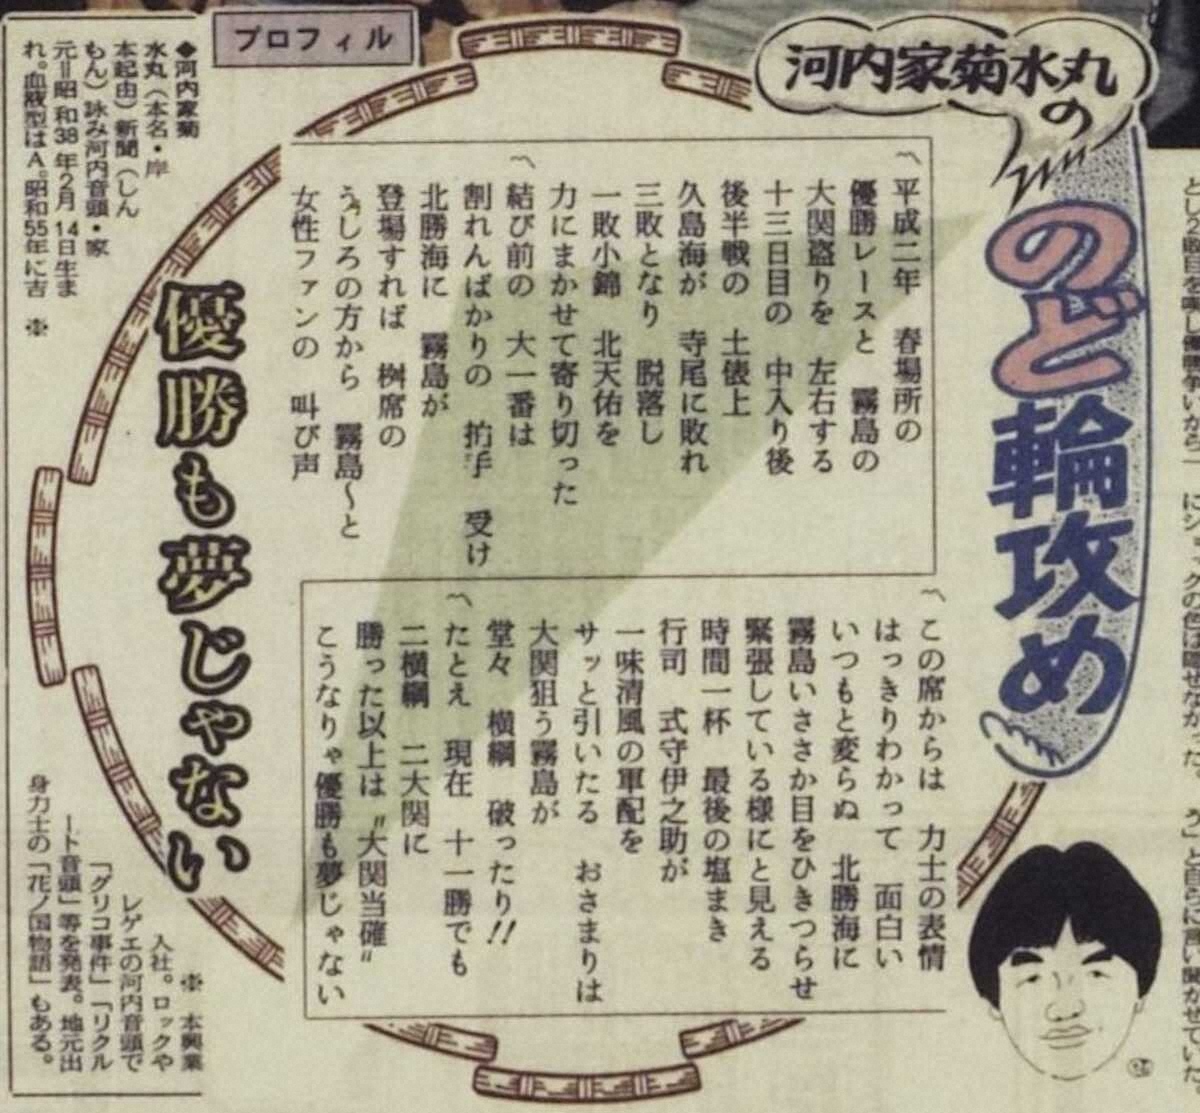 河内家菊水丸の
のど輪攻め
〽平成二年 春場所の
優勝レースと 霧島の
大関盗りを 左右する
十三日目の 中入り後
後半戦の 土俵上
久島海が 寺尾に敗れ
三敗となり 脱落し
一敗小錦 北天佑を
力にまかせて寄り切った
〽結び前の 大一番は
割れんばかりの 拍手 受け
北勝海に 霧島が
登場すれば 桝席の
うしろの方から 霧島〜と
女性ファンの 叫び声
〽この席からは 力士の表情
はっきりわかって 面白い
いつもと変らぬ 北勝海に
霧島いささか目をひきつらせ
緊張している様にと見える
時間一杯 最後の塩まき
行司 式守伊之助が
一味清風の軍配を
サッと引いたる おさまりは
大関狙う霧島が
堂々 横綱 破ったり!!
〽たとえ 現在 十一勝でも
二横綱 二大関に
勝った以上は〝大関当確〟
こうなりゃ優勝も夢じゃない
優勝も夢じゃない
プロフィル
◆河内家菊
水丸(本名・岸
本起由)新聞(しん
もん)詠み河内音頭・家
元=昭和38年2月14日生ま
れ。血液型はA。昭和55年に吉 ※
※ 本興業
入社。ロックや
レゲエの河内音頭で
「グリコ事件」「リクル
ート音頭」等を発表。地元出
身力士の「花ノ国物語」もある。